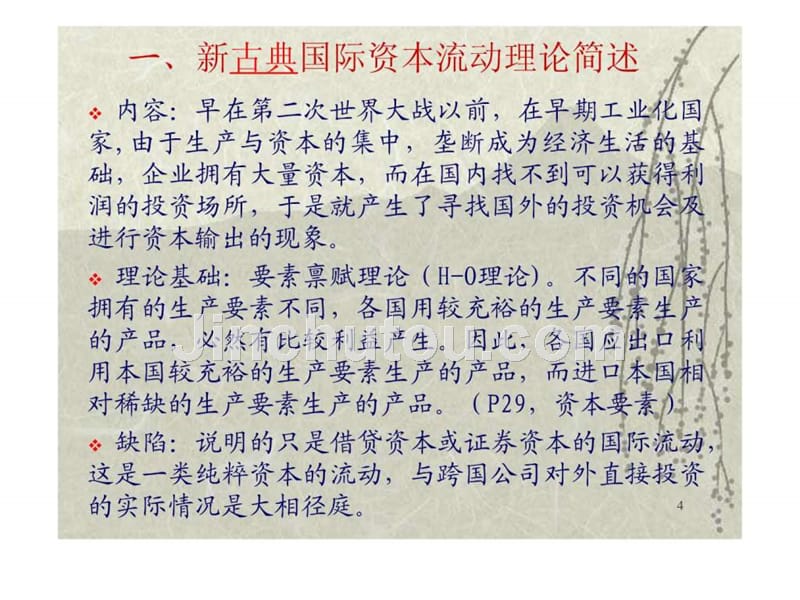 一、新古典国际资本流动理论简述
内容：早在第二次世界大战以前，在早期工业化国
家,由于生产与资本的集中，垄断成为经济生活的基
础，企业拥有大量资本，而在国内找不到可以获得利
润的投资场所，于是就产生了寻找国外的投资机会及
进行资本输出的现象。
理论基础：要素禀赋理论（H-O理论)。不同的国家
拥有的生产要素不同，各国用较充裕的生产要素生产
的产品，必然有比较利益产生。因此，各国应出口利
用本国较充裕的生产要素生产的产品，而进口本国相
对稀缺的生产要素生产的产品。（P29，资本要素）
缺陷：说明的只是借贷资本或证券资本的国际流动，
这是一类纯粹资本的流动，与跨国公司对外直接投资
的实际情况是大相径庭。
4
Jinchutou.com